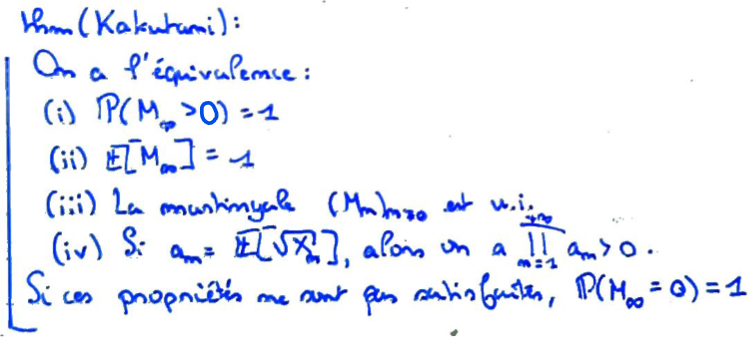 thm (Kakutani):
On a l'équivalence :
(i) ℙ(M_∞ > 0) = 1
(ii) 𝔼[M_∞] = 1
(iii) La martingale (M_n)_{n≥0} est u.i.
(iv) Si a_n = 𝔼[√X_n], alors on a ∏_{n=1}^{+∞} a_n > 0.
Si ces propriétés ne sont pas satisfaites, ℙ(M_∞ = 0) = 1